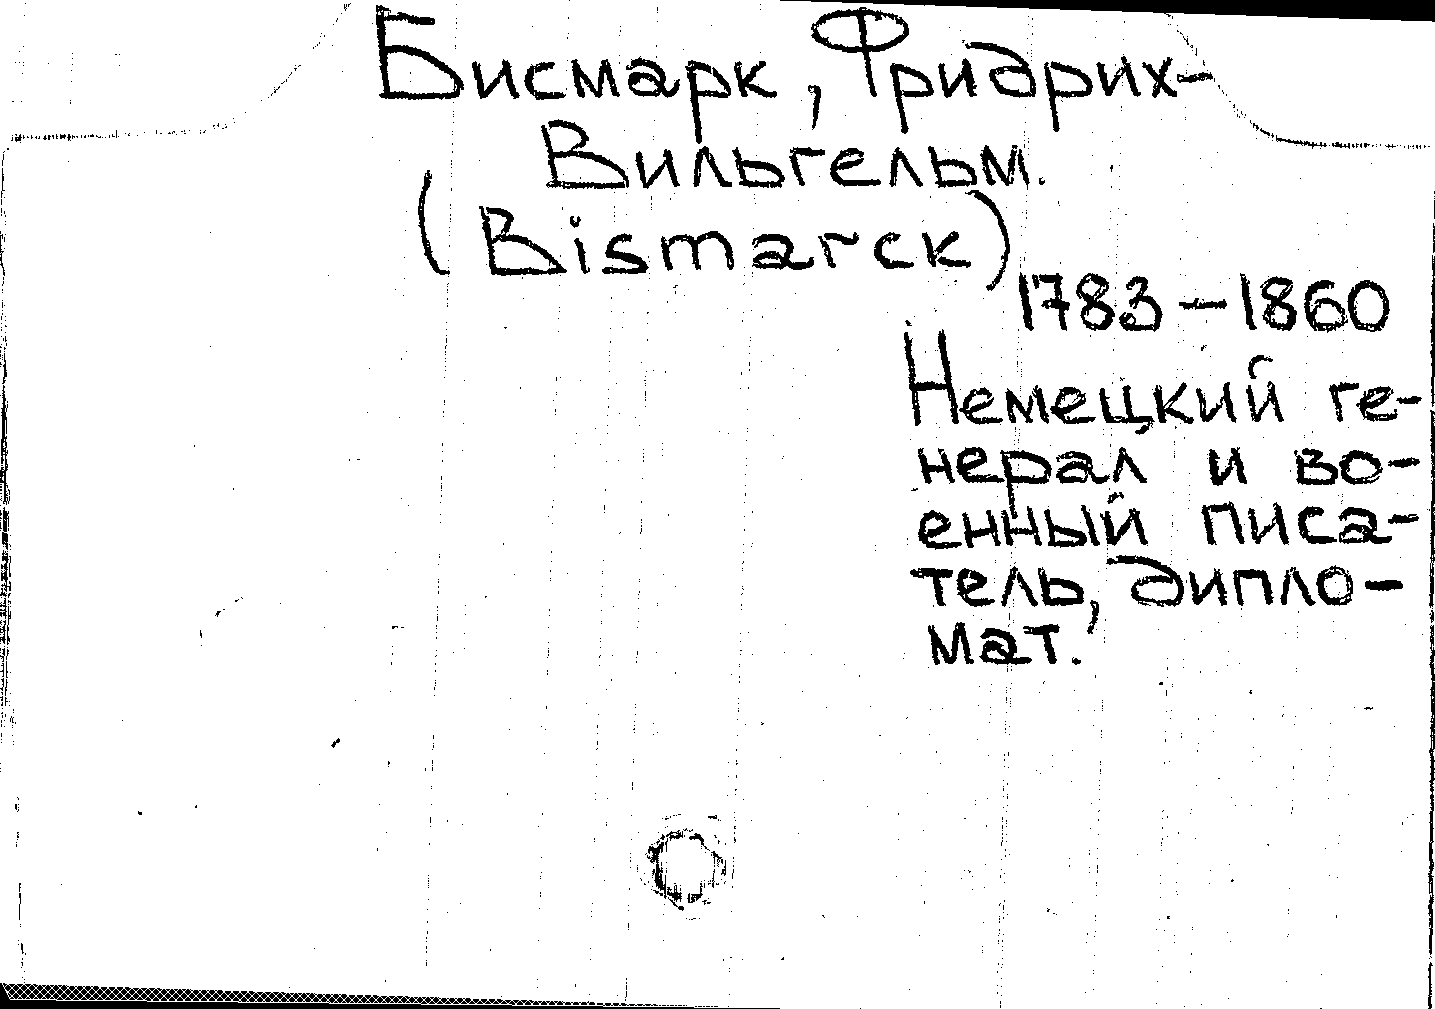 Бисмарк, Фридрих-
Вильгельм.
(Bismarck)
1783-1860
Немецкий ге-
нерал и во-
енный писа-
тель, дипло-
мат.